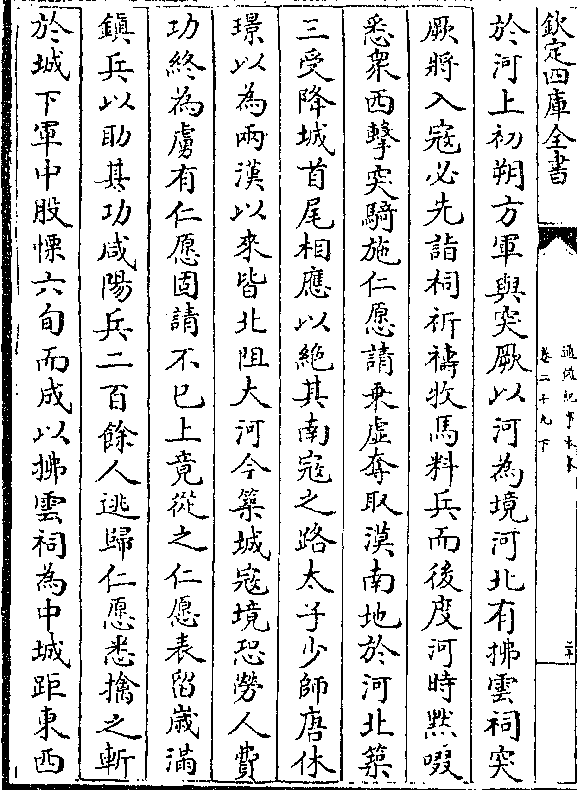 欽定四庫全書
通鑑紀事本末
卷二十九下
於河上初朔方軍與突厥以河為境河北有拂雲祠突
厥將入寇必先詣祠祈禱牧馬料兵而後度河時黙啜
悉衆西擊突騎施仁愿請乗虛奪取漠南地於河北築
三受降城首尾相應以絶其南寇之路太子少師唐休
璟以為兩漢以來皆北阻大河今築城寇境恐勞人費
功終為虜有仁愿固請不已上竟從之仁愿表留歲滿
鎮兵以助其功咸陽兵二百餘人逃歸仁愿悉擒之斬
於城下軍中股慄六旬而成以拂雲祠為中城距東西